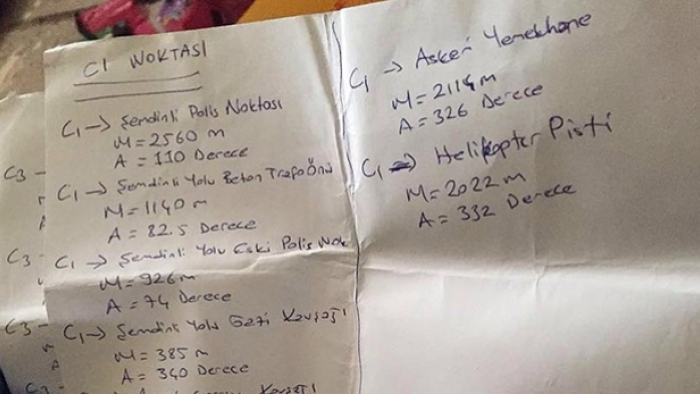 C1 NOKTASI
C1 → Şemdinli Polis Noktası
M = 2560 m
A = 110 Derece
C1 → Şemdinli Yolu Beton Trafo Önü
M = 1140 m
A = 82.5 Derece
C1 → Şemdinli Yolu Eski Polis Nok
M = 926 m
A = 74 Derece
C1 → Şemdinli Yolu Gezi Kavşağı
M = 385 m
A = 340 Derece
Kavşağı
C3 -
C3 -
C3 -
C3 -
C1 → Askeri Yemekhane
M = 2114 m
A = 326 Derece
C1 → Helikopter Pisti
M = 2022 m
A = 332 Derece